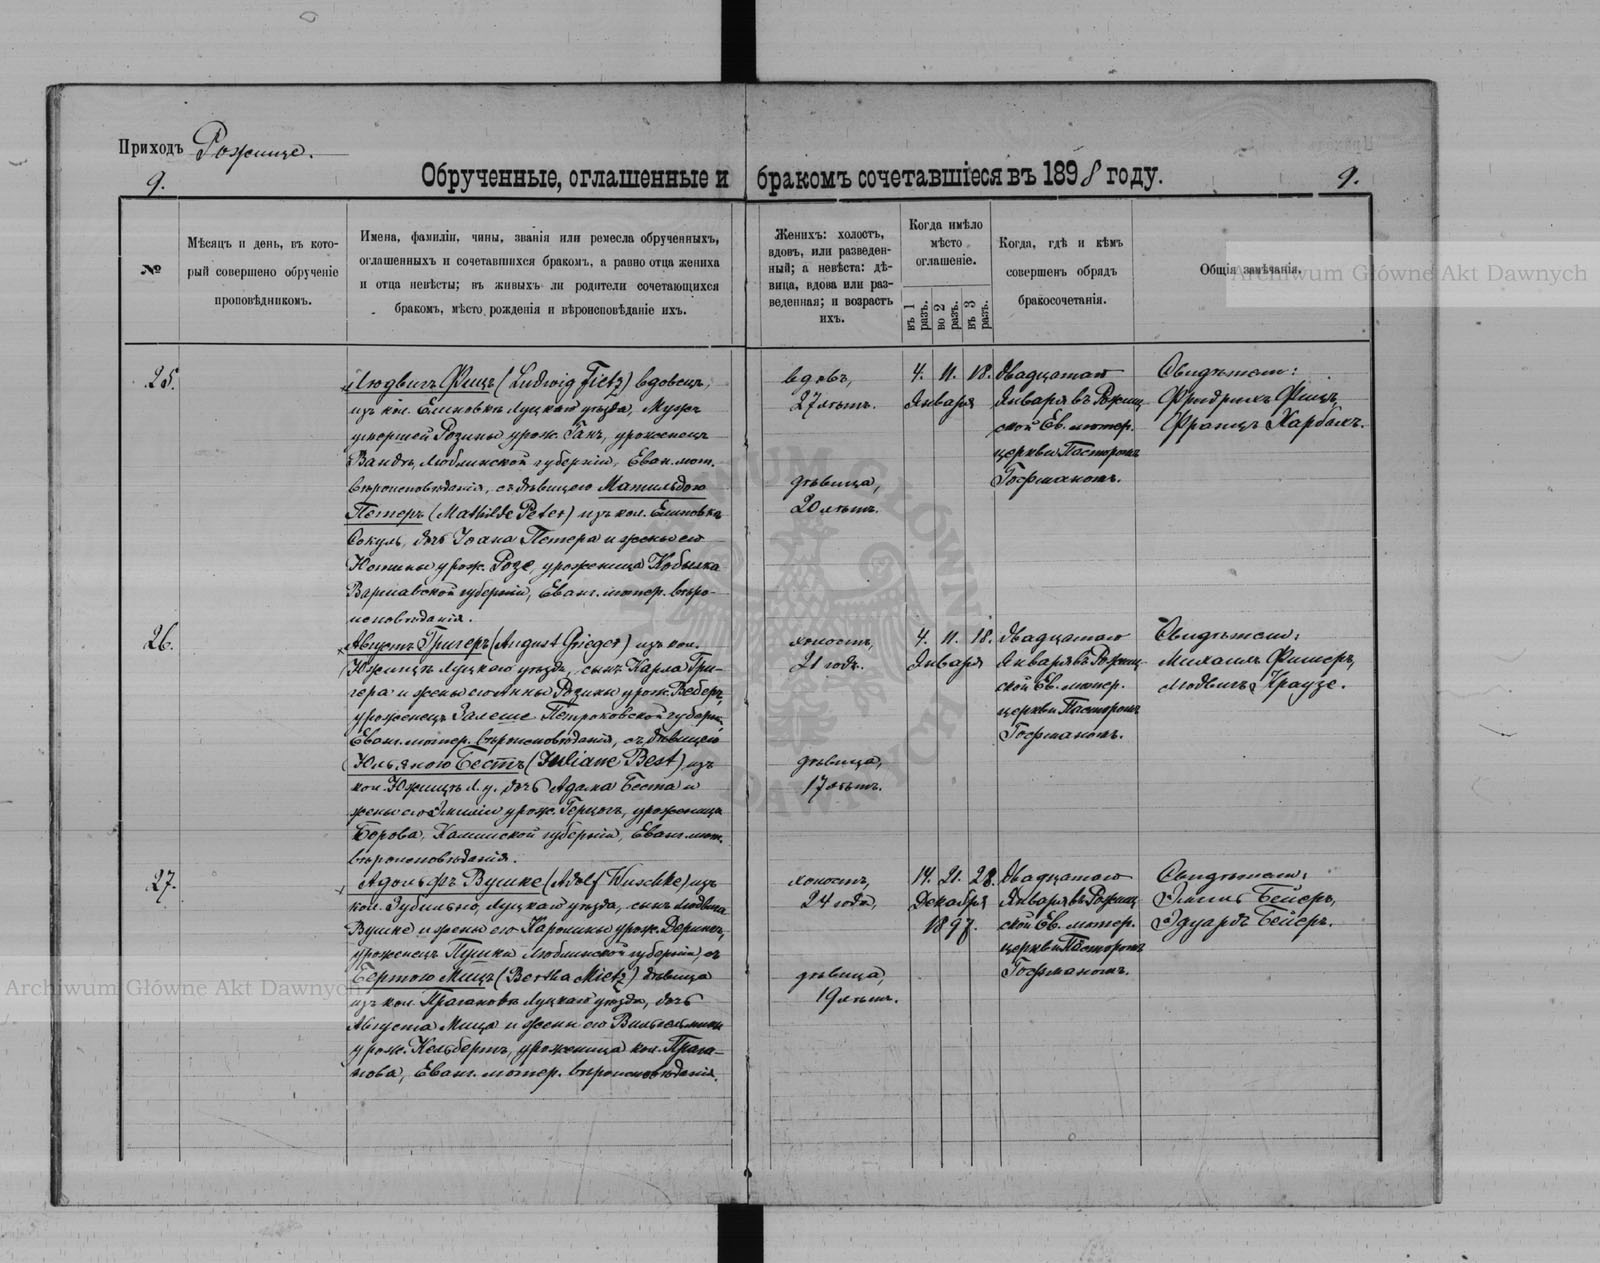 Приходъ Рожище.
9.
Обрученные, оглашенные и бракомъ сочетавшіеся въ 1898 году.
9.
№
Мѣсяцъ и день, въ кото-
рый совершено обрученіе
проповѣдникомъ.
Имена, фамиліи, чины, званія или ремесла обрученныхъ,
оглашенныхъ и сочетавшихся бракомъ, а равно отца жениха
и отца невѣсты; въ живыхъ ли родители сочетающихся
бракомъ, мѣсто рожденія и вѣроисповѣданіе ихъ.
Женихъ: холостъ,
вдовъ, или разведен-
ный; а невѣста: дѣ-
вица, вдова или раз-
веденная; и возрастъ
ихъ.
Когда имѣло
мѣсто
оглашеніе.
въ 1 разъ.
во 2 разъ.
въ 3 разъ.
Когда, гдѣ и кѣмъ
совершенъ обрядъ
бракосочетанія.
Общія замѣчанія.
Archiwum Główne Akt Dawnych
25.
Людвигъ Фицъ (Ludwig Fietz) вдовецъ,
изъ кол. Елиновка Луцкаго уѣзда, Мужъ
умершей Розины урож. Ганъ, уроженецъ
Люблинской губерніи, Еван. лют.
вѣроисповѣданія, съ дѣвицею Матильдою
Петеръ (Mathilde Peter) изъ кол. Елиновка
Сокуль, дочь Іоана Петера и жены его
урож. Розе, уроженица Кобылка
Варшавской губерніи, Еванг. лютер. вѣро-
исповѣданія.
вдовъ,
27 лѣтъ.
дѣвица,
20 лѣтъ.
4. 11. 18.
Января
двадцатаго
Января въ Рожищ
ской Ев. лютер.
церкви Пасторомъ
Гофманомъ.
Свидѣтели:
Фридрихъ Фицъ,
Францъ Харбахъ.
26.
Августъ Григеръ (August Grieger) изъ кол.
Юзишъ Луцкаго уѣзда, сынъ Карла Гри-
гера и жены его Анны Розины урож. Веберъ,
уроженецъ Залеше Петроковской губерн.
Еванг. лютер. вѣроисповѣданія, съ дѣвицею
Юльяною Бестъ (Juliane Best) изъ
кол. Юзишъ Л. у. дочь Адама Беста и
жены его Эмиліи урож. Герцогъ, уроженица
Борова, Калишской губерніи, Еванг. лют.
вѣроисповѣданія.
холостъ,
21 годъ.
дѣвица,
17 лѣтъ.
4. 11. 18.
Января
двадцатаго
Января въ Рожищ-
ской Ев. лютер.
церкви Пасторомъ
Гофманомъ.
Свидѣтели:
Михаилъ Фишеръ,
Людвигъ Краузе.
27.
Адольфъ Вушке (Adolf Wuschke) изъ
кол. Зубильно, Луцкаго уѣзда, сынъ Людвига
Вушке и жены его Каролины урож. Дерингъ,
уроженецъ Пушки Люблинской губерніи, съ
Бертою Мицъ (Bertha Mietz) дѣвица
изъ кол. Прагановка Луцкаго уѣзда, дочь
Августа Мица и жены его Вильгельмины
урож. Кельбертъ, уроженица кол. Прага-
нова, Еванг. лютер. вѣроисповѣданія.
холостъ,
24 года,
дѣвица,
19 лѣтъ.
14. 21. 28.
Декабря
1897.
двадцатаго
Января въ Рожищ
ской Ев. лютер.
церкви Пасторомъ
Гофманомъ.
Свидѣтели:
Эмиль Бейеръ,
Эдуардъ Бейеръ.
Archiwum Główne Akt Dawnych